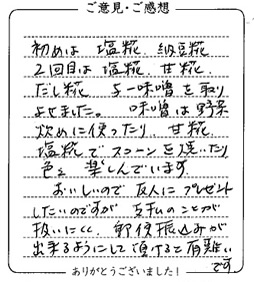 ご意見・ご感想
初めは 塩糀、納豆糀
2回目は 塩糀、甘糀、
だし糀 よー味噌を取り
よせました。 味噌は野菜
炒めに使ったり、甘糀、
塩糀でスコーンを焼いたり
色々 楽しんでいます。
おいしいので 友人に プレゼント
したいのですが 支払のことが
扱いにくく、郵便振込みが
出来るようにして頂けると有難い
です
ありがとうございました!